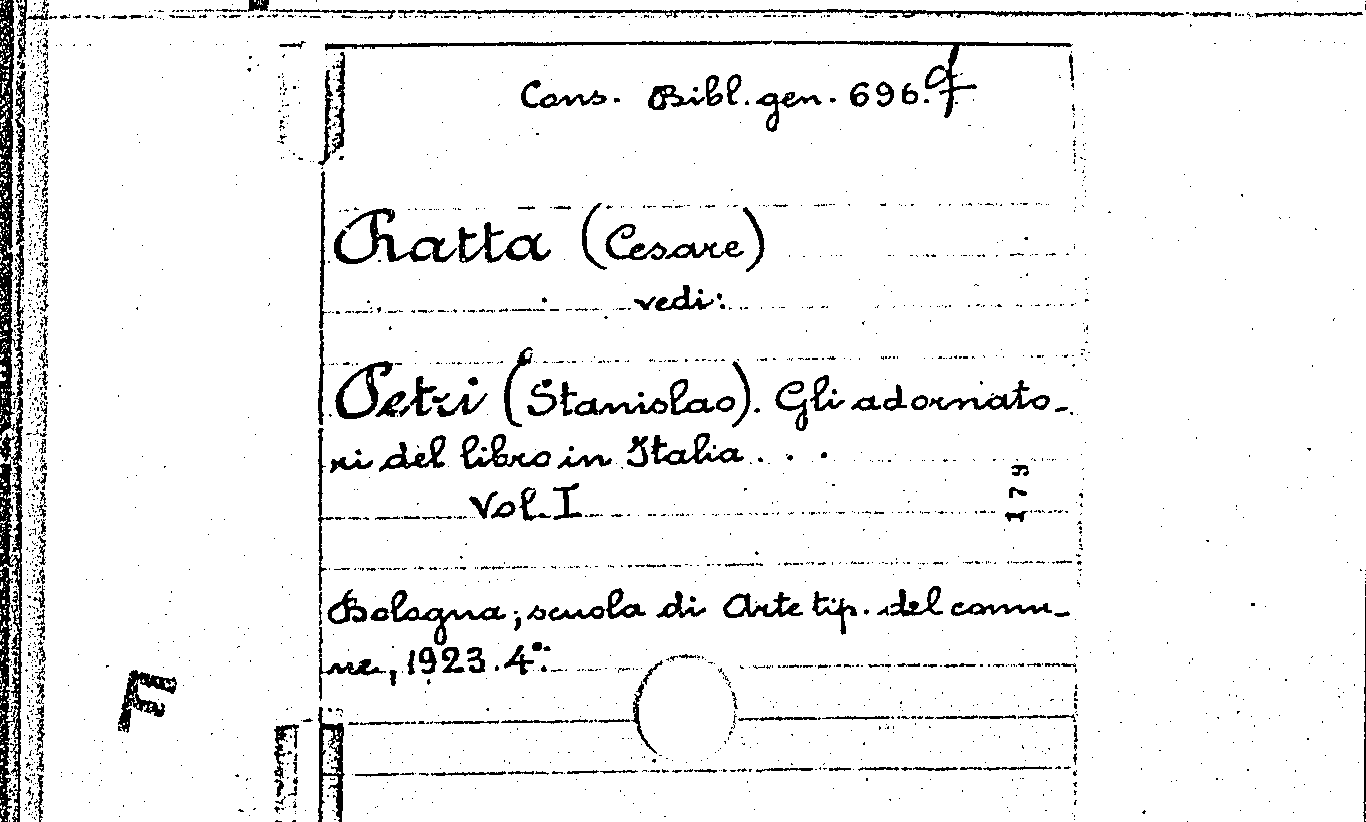 Cons. Bibl. gen. 696. cf
Ratta (Cesare)
vedi:
Petri (Stanislao). Gli adornato-
ri del libro in Italia . . .
Vol. I
179
Bologna; scuola di Arte tip. del comu-
ne, 1923. 4°.
F